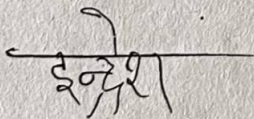 इन्द्रेश